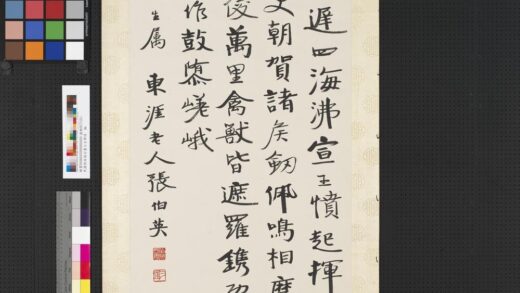 遲四海沸宣王憤起揮
朝賀諸侯劔佩鳴相磨
俊萬里禽獸皆遮羅鐫功
作鼓隳嵯峨
生属 東涯老人張伯英